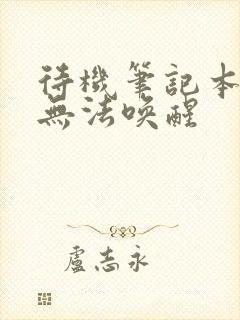 待機筆記本
無法喚醒
盧志永